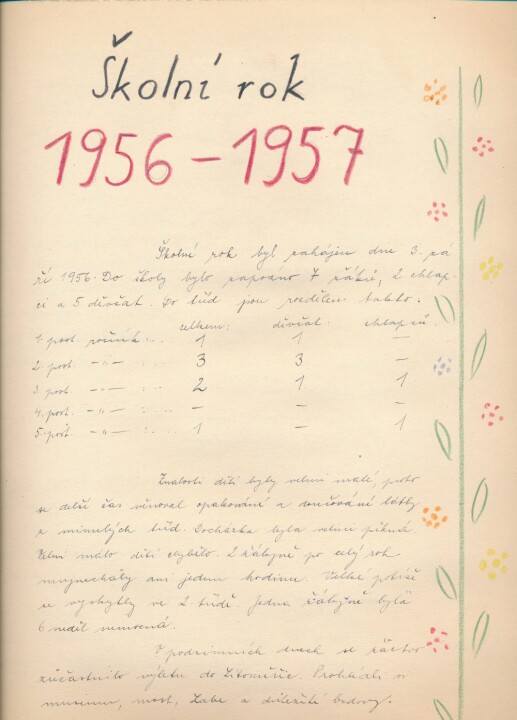 Školní rok
1956 – 1957
Školní rok byl zahájen dne 3. zá-
ří 1956. Do školy bylo zapsáno 7 žáků, 2 chlap-
ci a 5 děvčat. Do tříd jsou rozdělen takto:
celkem: děvčat: chlapců.
1. post. ročník: .. 1 1 –
2. post. – „ – : .. 3 3 –
3. post. – „ – : .. 2 1 1
4. post. – „ – : .. – – –
5. post. – „ – : .. 1 – 1
Znalosti dětí byly velmi malé, proto
se delší čas věnoval opakování a doučování látky
z minulých tříd. Docházka byla velmi pěkná.
Velmi málo dětí chybělo. 2 žákyně po celý rok
nezameškaly ani jednu hodinu. Velké potíže
se vyskytly ve 2. třídě. Jedna žákyně byla
6 neděl nemocná.
V podzimních dnech se žactvo
zúčastnilo výletu do Litoměřic. Prohlédli si
museum, most, Labe a důležité budovy.